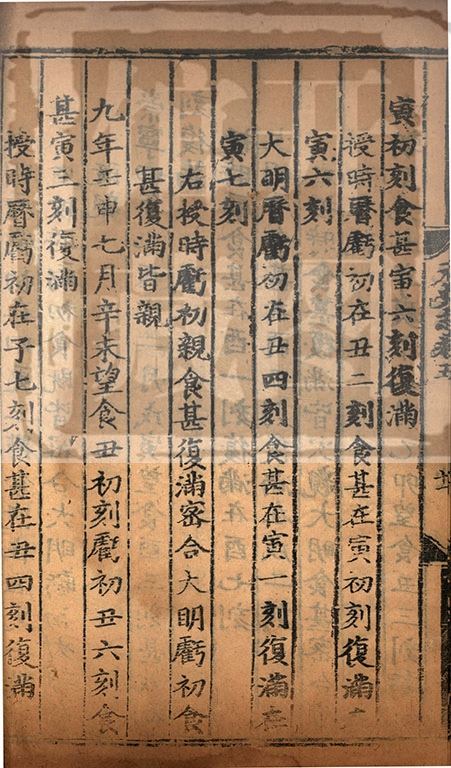 寅初刻食甚寅六刻復滿
授時曆虧初在丑二刻食甚在寅初刻復滿在
寅六刻
大明曆虧初在丑四刻食甚在寅一刻復滿在
寅七刻
右授時虧初親食甚復滿密合大明虧初食
甚復滿皆親
九年壬申七月辛未望食丑初刻虧初丑六刻食
甚寅三刻復滿
授時曆虧初在子七刻食甚在丑四刻復滿